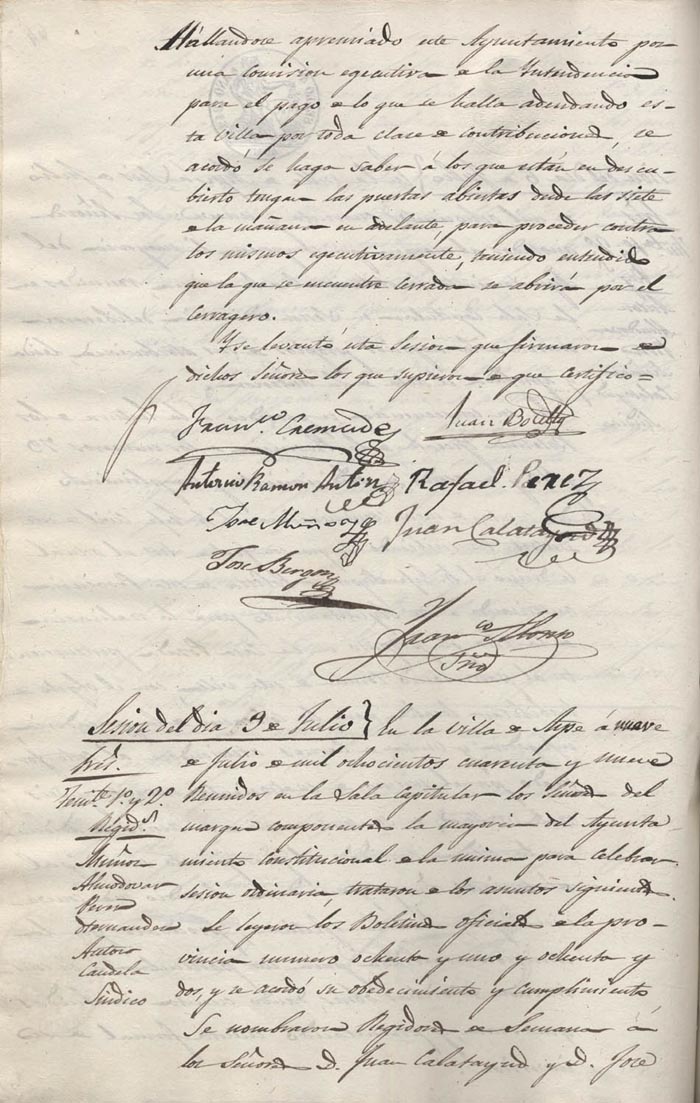 Hallandose apremiado este Ayuntamiento por
una comision egecutiva de la Yntendencia
para el pago de lo que se halla adeudando es-
ta villa por toda clase de contribuciones, se
acordó se haga saber á los que están en descu-
bierto tengan las puertas abiertas desde las siete
de la mañana en adelante, para proceder contra
los mismos egecutivamente, teniendo entendido
que la que se encuentre cerrada se abrirá por el
cerragero.
Y se levantó esta Sesion que firmaron de
dichos Señores los que supieron de que certifico=
Fran.co Cremades
Juan Botella
Antonio Ramon Antón
Rafael Perez
Jose Muñoz
Juan Calatayud
Jose Bergon
Fran.co Alonso
Srio
Sesion del dia 9 de Julio} En la villa de Aspe á nueve
Pres.
de Julio de mil ochocientos cuarenta y nueve
Tente. 1º. y 2º.
Reunidos en la Sala Capitular los Señores del
Regid.s
margen componentes la mayoria del Ayunta-
Muñoz
miento constitucional de la misma para celebrar
Almodovar
sesion ordinaria, trataron de los asuntos siguientes.
Perez
Hernandez
Se leyeron los Boletines oficiales de la pro-
Antón
vincia numero ochenta y uno y ochenta y
Candela
dos, y se acordó su obedecimiento y cumplimiento
Sindico
Se nombraron Regidores de Semana á
los Señores D. Juan Calatayud y D. Jose